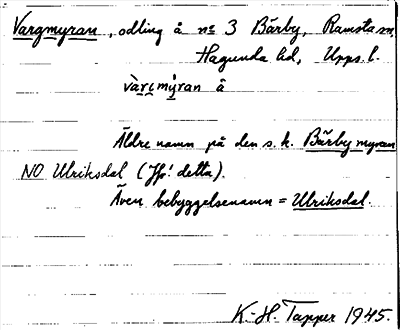 Vargmyran, odling å nº 3 Bärby, Ramsta sn,
Hagunda hd, Upps. l.
vàrgmy̆ran å
Äldre namn på den s.k. Bärby myran
NO Ulriksdal (Jfr! detta).
Även bebyggelsenamn = Ulriksdal.
K.-H. Tapper 1945.